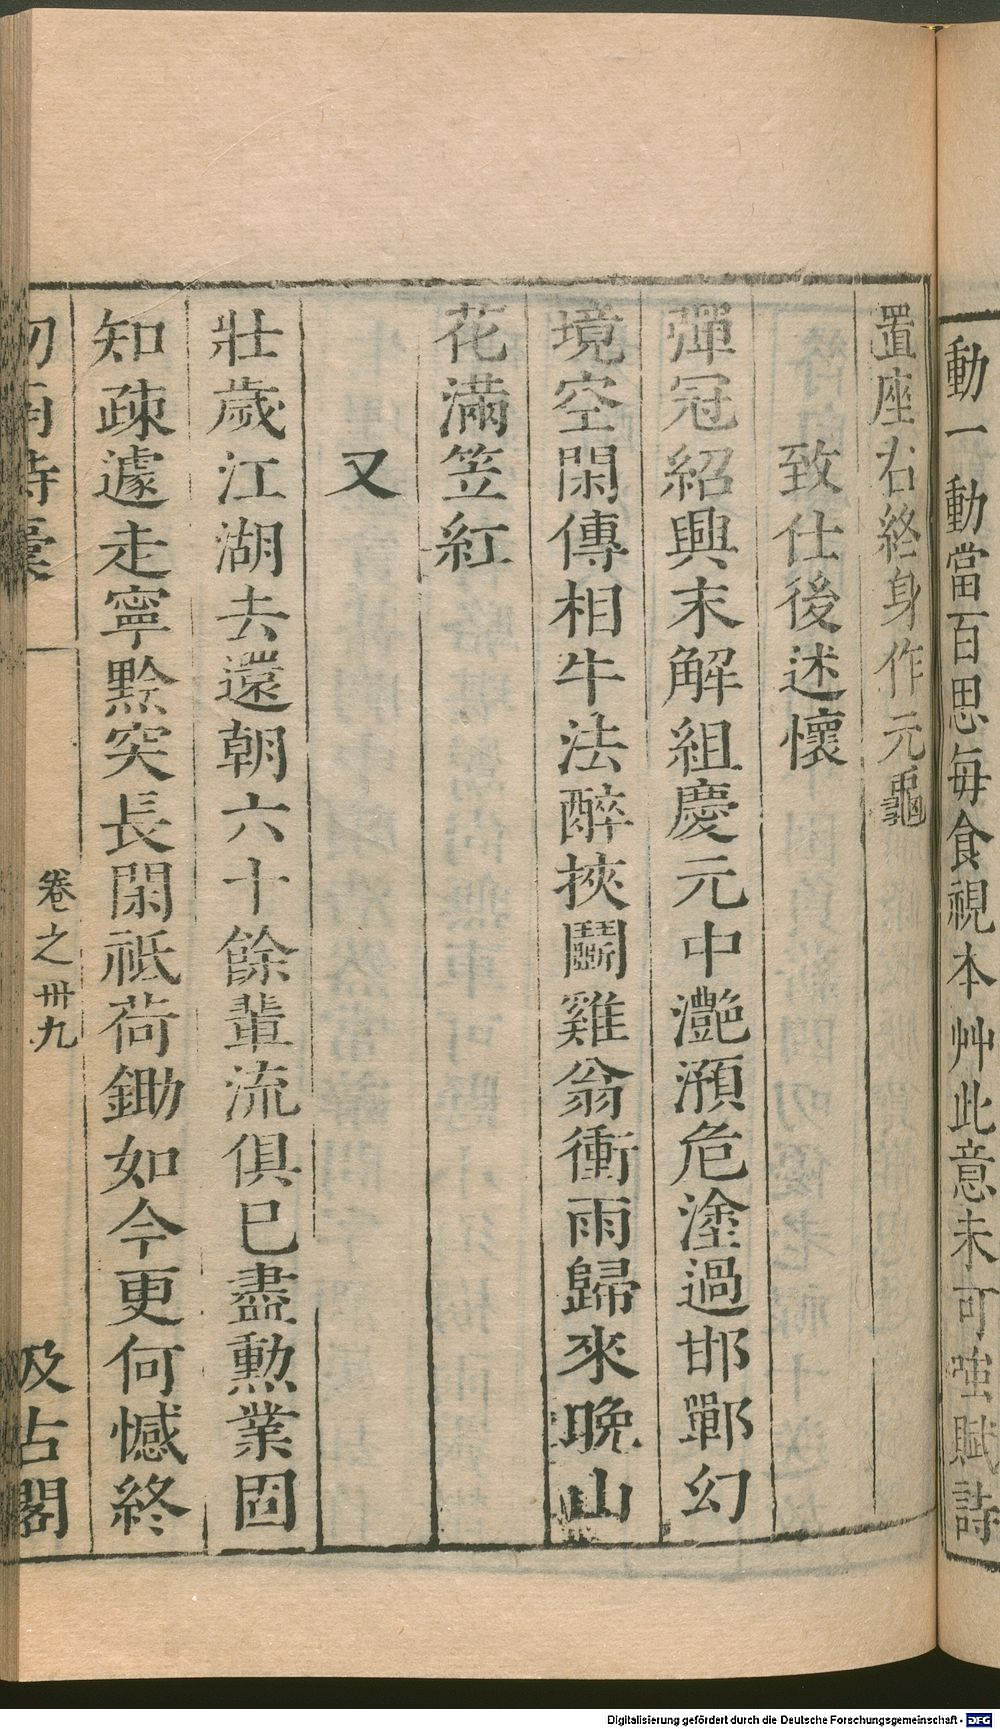 動一動當百思每食視本艸此意未可強賦詩
置座右終身作元龜
致仕後述懷
彈冠紹興末解組慶元中灔澦危塗過邯鄲幻
境空閑傳相牛法醉挾鬭雞翁衝雨歸來晚山
花滿笠紅
又
壯歲江湖去還朝六十餘輩流俱已盡勳業固
知疎遽走寧黔突長閑祇荷鋤如今更何憾終
卷之卅九
汲古閣
Digitalisierung gefördert durch die Deutsche Forschungsgemeinschaft - DFG